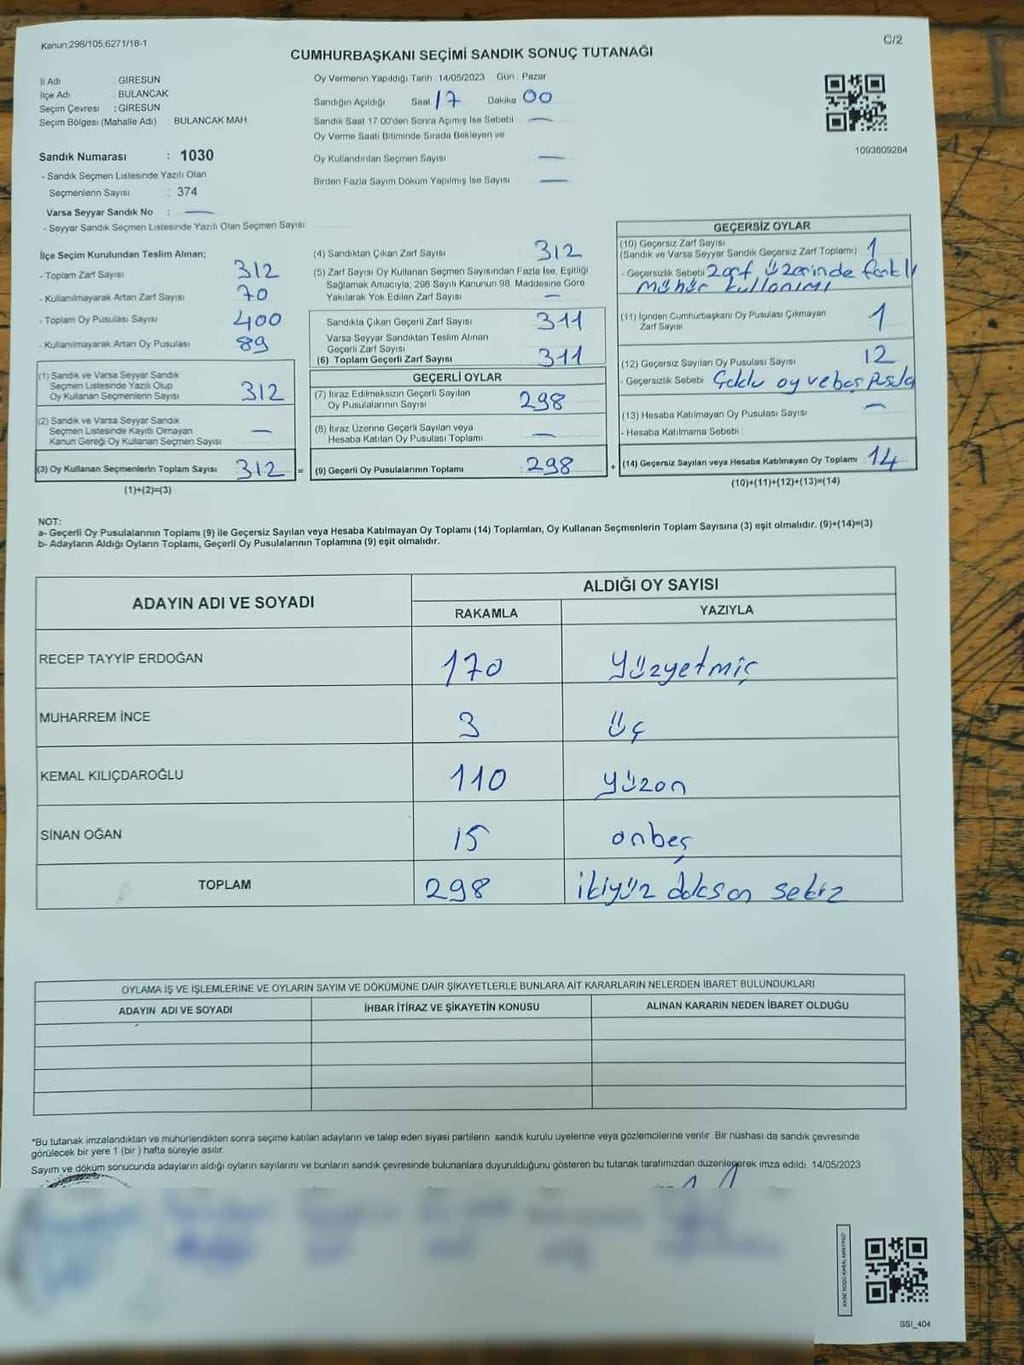 Kanun:298/105;6271/18-1
C/2
CUMHURBAŞKANI SEÇİMİ SANDIK SONUÇ TUTANAĞI
İl Adı : GİRESUN
İlçe Adı : BULANCAK
Seçim Çevresi : GİRESUN
Seçim Bölgesi (Mahalle Adı) : BULANCAK MAH.
Sandık Numarası : 1030
- Sandık Seçmen Listesinde Yazılı Olan
Seçmenlerin Sayısı : 374
Varsa Seyyar Sandık No : —
- Seyyar Sandık Seçmen Listesinde Yazılı Olan Seçmen Sayısı
Oy Vermenin Yapıldığı Tarih :14/05/2023 Gün : Pazar
Sandığın Açıldığı Saat 17 Dakika 00
Sandık Saat 17:00'den Sonra Açmış İse Sebebi —
Oy Verme Saati Bitiminde Sırada Bekleyen ve
Oy Kullandırılan Seçmen Sayısı —
Birden Fazla Sayım Döküm Yapılmış İse Sayısı —
1093809284
İlçe Seçim Kurulundan Teslim Alınan;
- Toplam Zarf Sayısı 312
- Kullanılmayarak Artan Zarf Sayısı 70
- Toplam Oy Pusulası Sayısı 400
- Kullanılmayarak Artan Oy Pusulası 89
(1) Sandık ve Varsa Seyyar Sandık
Seçmen Listesinde Yazılı Olup
Oy Kullanan Seçmenlerin Sayısı 312
(2) Sandık ve Varsa Seyyar Sandık
Seçmen Listesinde Kayıtlı Olmayan
Kanun Gereği Oy Kullanan Seçmen Sayısı —
(3) Oy Kullanan Seçmenlerin Toplam Sayısı 312 =
(1)+(2)=(3)
(4) Sandıktan Çıkan Zarf Sayısı 312
(5) Zarf Sayısı Oy Kullanan Seçmen Sayısından Fazla İse, Eşitliği
Sağlamak Amacıyla, 298 Sayılı Kanunun 98. Maddesine Göre
Yakılarak Yok Edilen Zarf Sayısı —
Sandıkta Çıkan Geçerli Zarf Sayısı 311
Varsa Seyyar Sandıktan Teslim Alınan
Geçerli Zarf Sayısı
(6) Toplam Geçerli Zarf Sayısı 311
GEÇERLİ OYLAR
(7) İtiraz Edilmeksizin Geçerli Sayılan
Oy Pusulalarının Sayısı 298
(8) İtiraz Üzerine Geçerli Sayılan veya
Hesaba Katılan Oy Pusulası Toplamı —
(9) Geçerli Oy Pusulalarının Toplamı 298 +
GEÇERSİZ OYLAR
(10) Geçersiz Zarf Sayısı
(Sandık ve Varsa Seyyar Sandık Geçersiz Zarf Toplamı) 1
- Geçersizlik Sebebi Zarf üzerinde farklı
mühür kullanımı
(11) İçinden Cumhurbaşkanı Oy Pusulası Çıkmayan
Zarf Sayısı 1
(12) Geçersiz Sayılan Oy Pusulası Sayısı 12
- Geçersizlik Sebebi Çoklu oy ve boş pusula
(13) Hesaba Katılmayan Oy Pusulası Sayısı —
- Hesaba Katılmama Sebebi
(14) Geçersiz Sayılan veya Hesaba Katılmayan Oy Toplamı 14
(10)+(11)+(12)+(13)=(14)
NOT:
a- Geçerli Oy Pusulalarının Toplamı (9) ile Geçersiz Sayılan veya Hesaba Katılmayan Oy Toplamı (14) Toplamları, Oy Kullanan Seçmenlerin Toplam Sayısına (3) eşit olmalıdır. (9)+(14)=(3)
b- Adayların Aldığı Oyların Toplamı, Geçerli Oy Pusulalarının Toplamına (9) eşit olmalıdır.
ADAYIN ADI VE SOYADI
ALDIĞI OY SAYISI
RAKAMLA YAZIYLA
RECEP TAYYİP ERDOĞAN 170 yüzyetmiş
MUHARREM İNCE 3 üç
KEMAL KILIÇDAROĞLU 110 yüzon
SİNAN OĞAN 15 onbeş
TOPLAM 298 ikiyüz doksan sekiz
OYLAMA İŞ VE İŞLEMLERİNE VE OYLARIN SAYIM VE DÖKÜMÜNE DAİR ŞİKAYETLERLE BUNLARA AİT KARARLARIN NELERDEN İBARET BULUNDUKLARI
ADAYIN ADI VE SOYADI İHBAR İTİRAZ VE ŞİKAYETİN KONUSU ALINAN KARARIN NEDEN İBARET OLDUĞU
*Bu tutanak imzalandıktan ve mühürlendikten sonra seçime katılan adayların ve talep eden siyasi partilerin sandık kurulu üyelerine veya gözlemcilerine verilir. Bir nüshası da sandık çevresinde
görülecek bir yere 1 (bir) hafta süreyle asılır.
Sayım ve döküm sonucunda adayların aldığı oyların sayılarını ve bunların sandık çevresinde bulunanlara duyurulduğunu gösteren bu tutanak tarafımızdan düzenlenerek imza edildi. 14/05/2023
KARE KODU KARALAMAYINIZ!
SSI_404